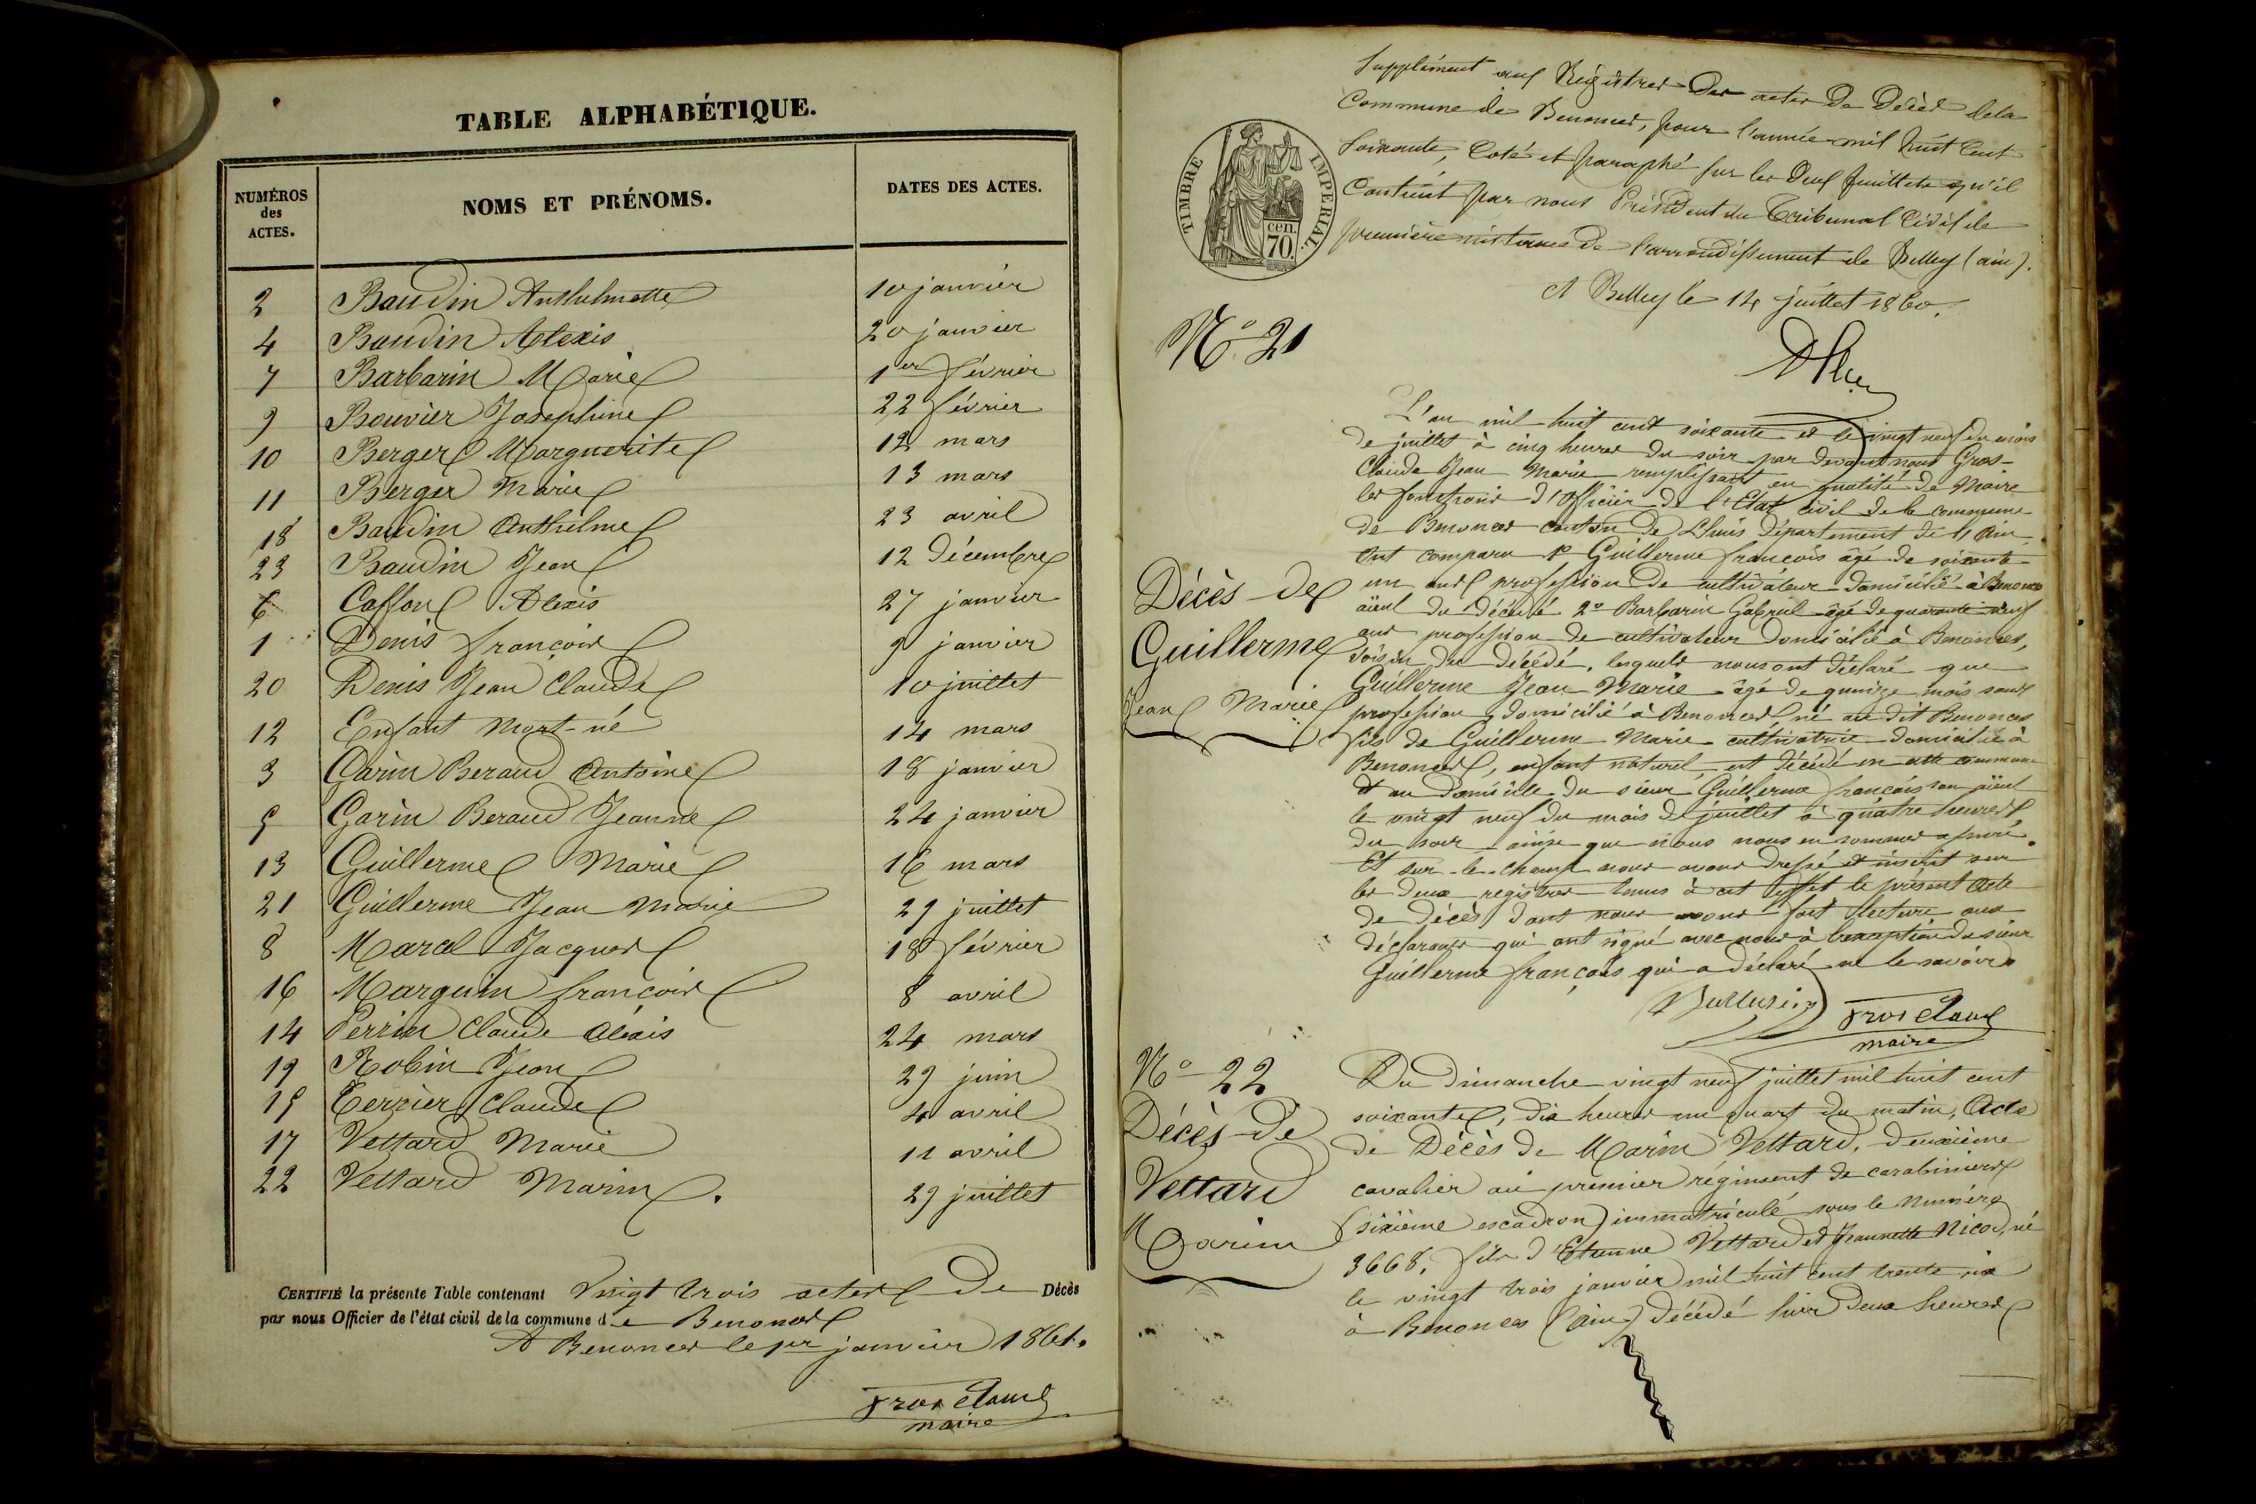 TABLE ALPHABÉTIQUE.
NUMÉROS des ACTES. NOMS ET PRÉNOMS. DATES DES ACTES.
2 Baudin Anthelmette 10 janvier
4 Baudin Alexis 20 janvier
7 Barbarin Marie 1er février
9 Bouvier Josephine 22 février
10 Berger Marguerite 12 mars
11 Berger Marie 13 mars
18 Baudin Anthelme 23 avril
23 Baudin Jean 12 décembre
6 Caffon Alexis 27 janvier
1 Denis françois 9 janvier
20 Denis Jean Claude 10 juillet
12 Enfant Mort-né 14 mars
3 Garin Beraud Antoine 18 janvier
5 Garin Beraud Jeanne 24 janvier
13 Guillerme Marie 16 mars
21 Guillerme Jean Marie 29 juillet
8 Marcel Jacques 18 février
16 Marguin françois 8 avril
14 Perrin Claude Alexis 24 mars
19 Robin Jean 29 juin
15 Terrier Claude 4 avril
17 Vettard Marie 11 avril
22 Vettard Marin. 29 juillet
CERTIFIÉ la présente Table contenant Vingt trois actes de Décès
par nous Officier de l'état civil de la commune de Benonces
A Benonces le 1er janvier 1861.
gros claude
maire
TIMBRE IMPÉRIAL.
cen.
70.
Supplément aux Régistres des actes de Décès de la
Commune de Benonces, pour l'année mil huit Cent
Soixante, Coté et paraphé sur les deux feuillets qu'il
Contient par nous Président du Tribunal Civil de
première instance de l'arrondissement de Belley (ain).
A Belley le 14 juillet 1860.
No 21
L'an mil huit cent soixante et le vingt neuf du mois
de juillet à cinq heures du soir par devant nous Gros
Claude Jean Marie remplissant en qualité de Maire
les fonctions d'Officier de l'Etat civil de la commune
de Benonces canton de Lhuis département de l'Ain
Ont comparu 1o Guillerme françois âgé de soixante
un ans profession de cultivateur domicilié à Benonces
aïeul du décédé 2o Barbarin Gabriel âgé de quarante neuf
ans profession de cultivateur domicilié à Benonces,
voisin du décédé. lesquels nous ont déclaré que
Guillerme Jean Marie âgé de quinze mois sans
profession domicilié à Benonces né au dit Benonces
fils de Guillerme Marie cultivatrice domiciliée à
Benonces, enfant naturel, est décédé en cette commune
et au domicile du sieur Guillerme françois son aïeul
le vingt neuf du mois de juillet à quatre heures
du soir ainsi que nous nous en sommes assuré.
Et sur-le-champ nous avons dressé et inscrit sur
les deux registres tenus à cet effet le présent Acte
de Décès dont nous avons fait lecture aux
déclarants qui ont signé avec nous à l'exception du sieur
Guillerme françois qui a déclaré ne le savoir.
gros claude
maire
Décès de
Guillerme
Jean Marie
No 22
Décès de
Vettard
Marin
Du dimanche vingt neuf juillet mil huit cent
soixante, dix heures un quart du matin, Acte
de Décès de Marin Vettard, deuxième
cavalier au premier régiment de carabiniers
(sixième escadron) immatriculé sous le numéro
3668, fils d'Etienne Vettard et Jeannette Nicod, né
le vingt trois janvier mil huit cent trente six
à Benonces (Ain) décédé hier deux heures